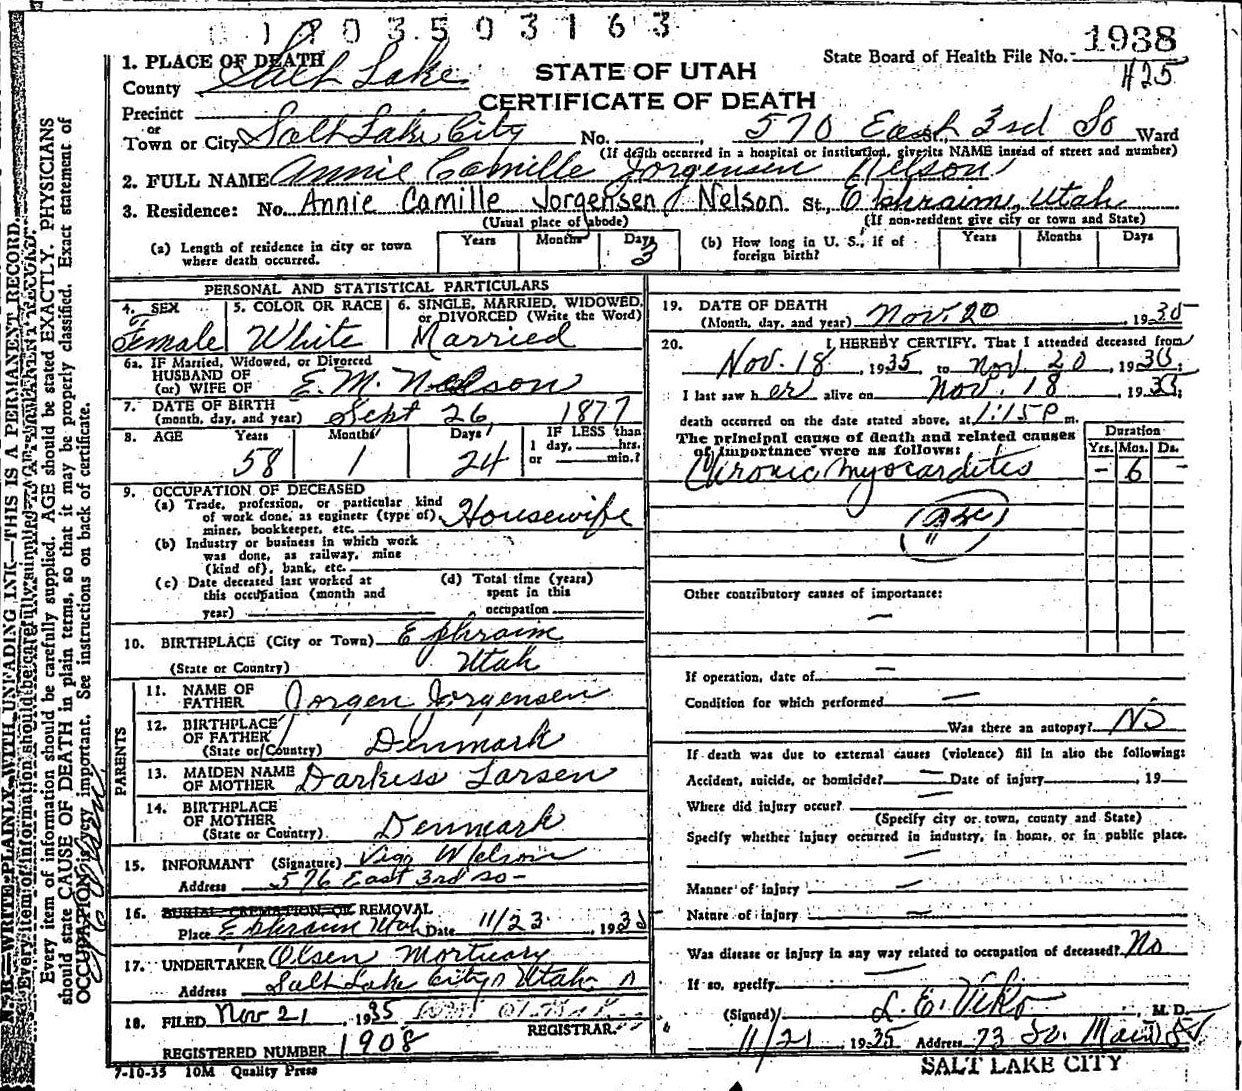 1 0 0 3 5 0 3 1 6 3
1938
State Board of Health File No.
H25
1. PLACE OF DEATH
County Salt Lake
STATE OF UTAH
CERTIFICATE OF DEATH
Precinct
or
Town or City Salt Lake City No. 570 East 3rd So St. Ward
(If death occurred in a hospital or institution, give its NAME instead of street and number)
2. FULL NAME Annie Camille Jorgensen Nelson
3. Residence: No. Annie Camille Jorgensen Nelson St., Ephraim, Utah
(Usual place of abode) (If non-resident give city or town and State)
(a) Length of residence in city or town where death occurred. Years Months Days 3
(b) How long in U. S., if of foreign birth? Years Months Days
PERSONAL AND STATISTICAL PARTICULARS
4. SEX Female
5. COLOR OR RACE White
6. SINGLE, MARRIED, WIDOWED, or DIVORCED (Write the Word) Married
6a. IF Married, Widowed, or Divorced
HUSBAND OF
(or) WIFE OF E. M. Nelson
7. DATE OF BIRTH
(month, day, and year) Sept 26, 1877
8. AGE Years 58 Months 1 Days 24 IF LESS than 1 day, hrs. or min.?
9. OCCUPATION OF DECEASED
(a) Trade, profession, or particular kind of work done, as engineer (type of) miner, bookkeeper, etc. Housewife
(b) Industry or business in which work was done, as railway, mine (kind of), bank, etc.
(c) Date deceased last worked at this occupation (month and year)
(d) Total time (years) spent in this occupation
10. BIRTHPLACE (City or Town) Ephraim
(State or Country) Utah
PARENTS
11. NAME OF FATHER Jorgen Jorgensen
12. BIRTHPLACE OF FATHER (State or Country) Denmark
13. MAIDEN NAME OF MOTHER Darkiss Larsen
14. BIRTHPLACE OF MOTHER (State or Country) Denmark
15. INFORMANT (Signature)
Address 576 East 3rd So -
16. BURIAL, CREMATION, OR REMOVAL
Place Ephraim Utah Date 11/23 1935
17. UNDERTAKER Olsen Mortuary
Address Salt Lake City Utah
18. FILED Nov 21, 1935
REGISTRAR
REGISTERED NUMBER 1908
7-10-35 10M Quality Press
19. DATE OF DEATH
(Month, day, and year) Nov. 20, 1935
20. I HEREBY CERTIFY, That I attended deceased from
Nov. 18, 1935 to Nov. 20, 1935.
I last saw her alive on Nov. 18, 1935.
death occurred on the date stated above, at 1:15 P m.
The principal cause of death and related causes of importance were as follows:
Duration
Yrs. Mos. Ds.
Chronic myocarditis - 6 -
Other contributory causes of importance:
—
If operation, date of —
Condition for which performed —
Was there an autopsy? No
If death was due to external causes (violence) fill in also the following:
Accident, suicide, or homicide? — Date of injury , 19
Where did injury occur? —
(Specify city or town, county and State)
Specify whether injury occurred in industry, in home, or in public place.
—
Manner of injury —
Nature of injury —
Was disease or injury in any way related to occupation of deceased? No
If so, specify —
(Signed) L. E. Viko M. D.
11/21 1935 Address 73 So. Main St
SALT LAKE CITY
N. B.—WRITE PLAINLY WITH UNFADING INK—THIS IS A PERMANENT RECORD.
Every item of information should be carefully supplied. AGE should be stated EXACTLY. PHYSICIANS
should state CAUSE OF DEATH in plain terms, so that it may be properly classified. Exact statement of
OCCUPATION is very important. See instructions on back of certificate.